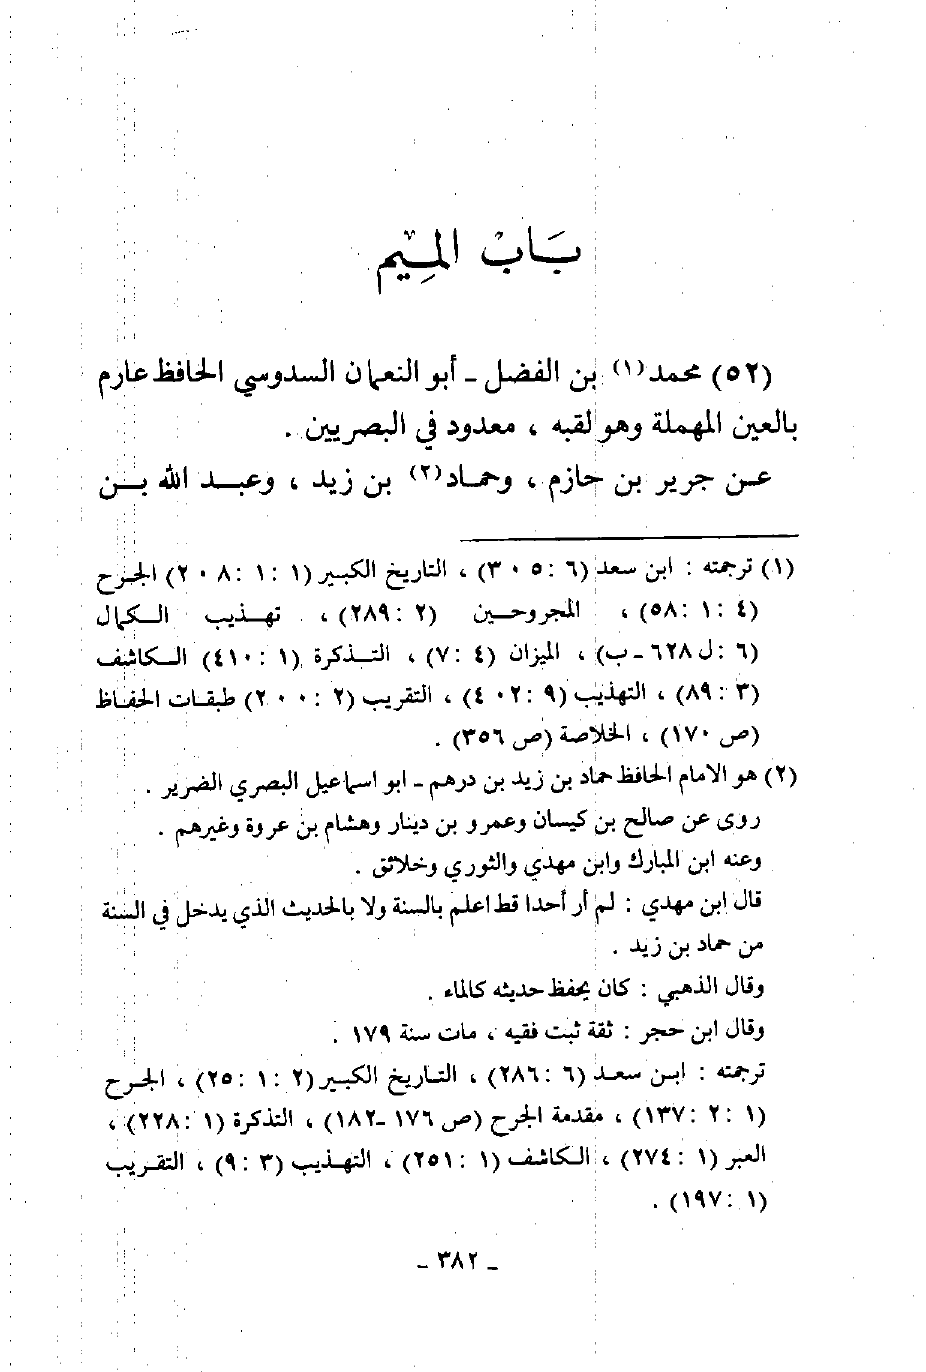 بَابْ المِيْم
(٥٢) محمد(١) بن الفضل ـ أبو النعمان السدوسي الحافظ عارم
بالعين المهملة وهو لقبه ، معدود في البصريين .
عن جرير بن حازم ، وحماد(٢) بن زيد ، وعبد الله بن
(١) ترجمته : ابن سعد (٦ : ٣٠٥) ، التاريخ الكبير (١ : ١ : ٢٠٨) الجرح
(٤ : ١ : ٥٨) ، المجروحين (٢ : ٢٨٩) ، تهذيب الكمال
(٦ : ل ٦٢٨ ـ ب) ، الميزان (٤ : ٧) ، التذكرة (١ : ٤١٠) الكاشف
(٣ : ٨٩) ، التهذيب (٩ : ٤٠٢) ، التقريب (٢ : ٢٠٠) طبقات الحفاظ
(ص ١٧٠) ، الخلاصة (ص ٣٥٦) .
(٢) هو الامام الحافظ حماد بن زيد بن درهم ـ ابو اسماعيل البصري الضرير .
روى عن صالح بن كيسان وعمرو بن دينار وهشام بن عروة وغيرهم .
وعنه ابن المبارك وابن مهدي والثوري وخلائق .
قال ابن مهدي : لم أر أحدا قط اعلم بالسنة ولا بالحديث الذي يدخل في السنة
من حماد بن زيد .
وقال الذهبي : كان يحفظ حديثه كالماء .
وقال ابن حجر : ثقة ثبت فقيه ، مات سنة ١٧٩ .
ترجمته : ابن سعد (٦ : ٢٨٦) ، التاريخ الكبير (٢ : ١ : ٢٥) ، الجرح
(١ : ٢ : ١٣٧) ، مقدمة الجرح (ص ١٧٦ ـ ١٨٢) ، التذكرة (١ : ٢٢٨) ،
العبر (١ : ٢٧٤) ، الكاشف (١ : ٢٥١) ، التهذيب (٣ : ٩) ، التقريب
(١ : ١٩٧) .
ـ ٣٨٢ ـ